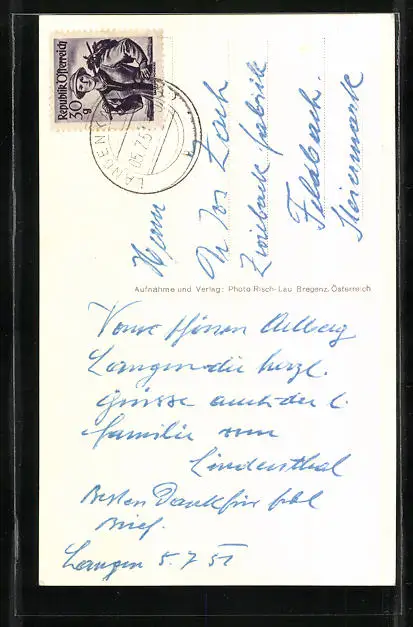 Republik Österreich
30 g
LANGEN
05.7.51
Herrn
Zwieback fabrik
Feldbach.
Steiermark
Aufnahme und Verlag: Photo Risch-Lau Bregenz, Österreich
Arlberg
Langen die herzl.
Grüsse auch der l.
Familie
Lindenthal
Besten Dank für
Brief.
Langen 5.7.51